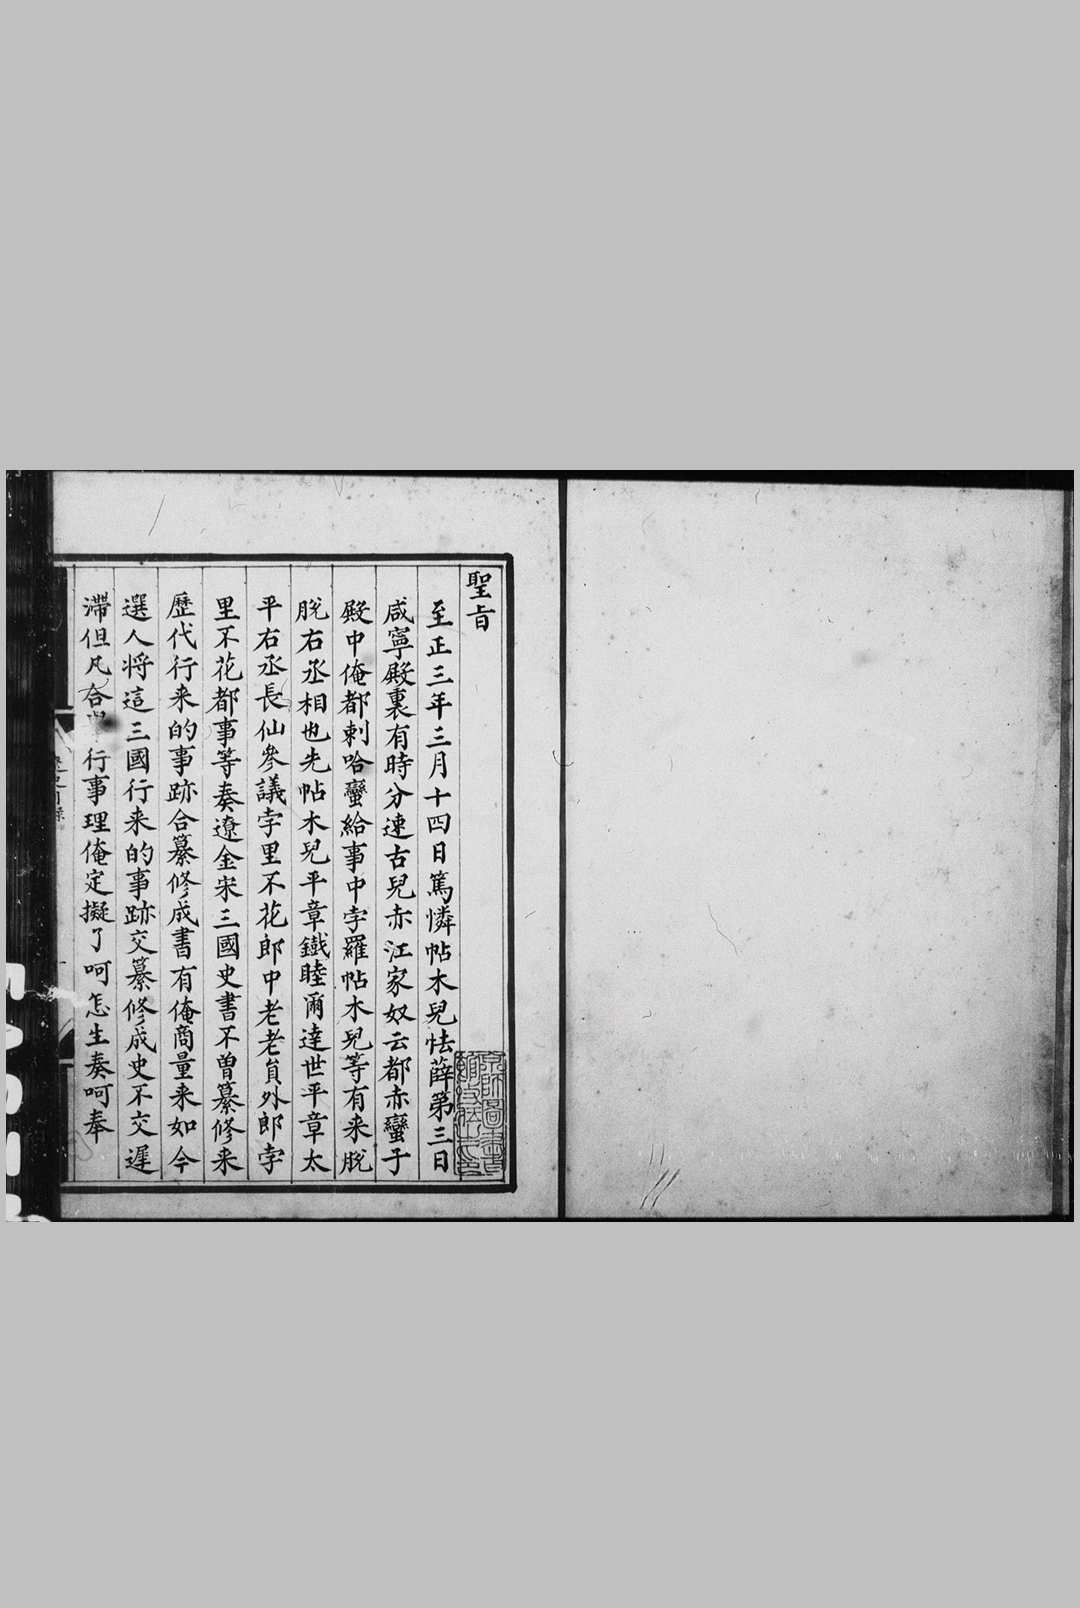 聖旨
至正三年三月十四日篤憐帖木兒怯薛第三日
咸寧殿裏有時分速古兒赤江家奴云都赤蠻子
殿中俺都剌哈蠻給事中孛羅帖木兒等有来脫
脫右丞相也先帖木兒平章鐵睦爾達世平章太
平右丞長仙參議孛里不花郎中老老員外郎孛
里不花都事等奏遼金宋三國史書不曾纂修来
歷代行来的事跡合纂修成書有俺商量来如今
選人将這三國行来的事跡交纂修成史不交遲
滯但凡合行事理俺定擬了呵怎生奏呵奉